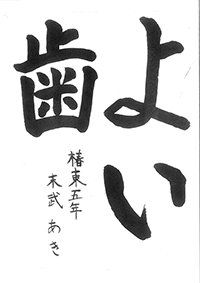 よい
歯
椿東五年
末武あき